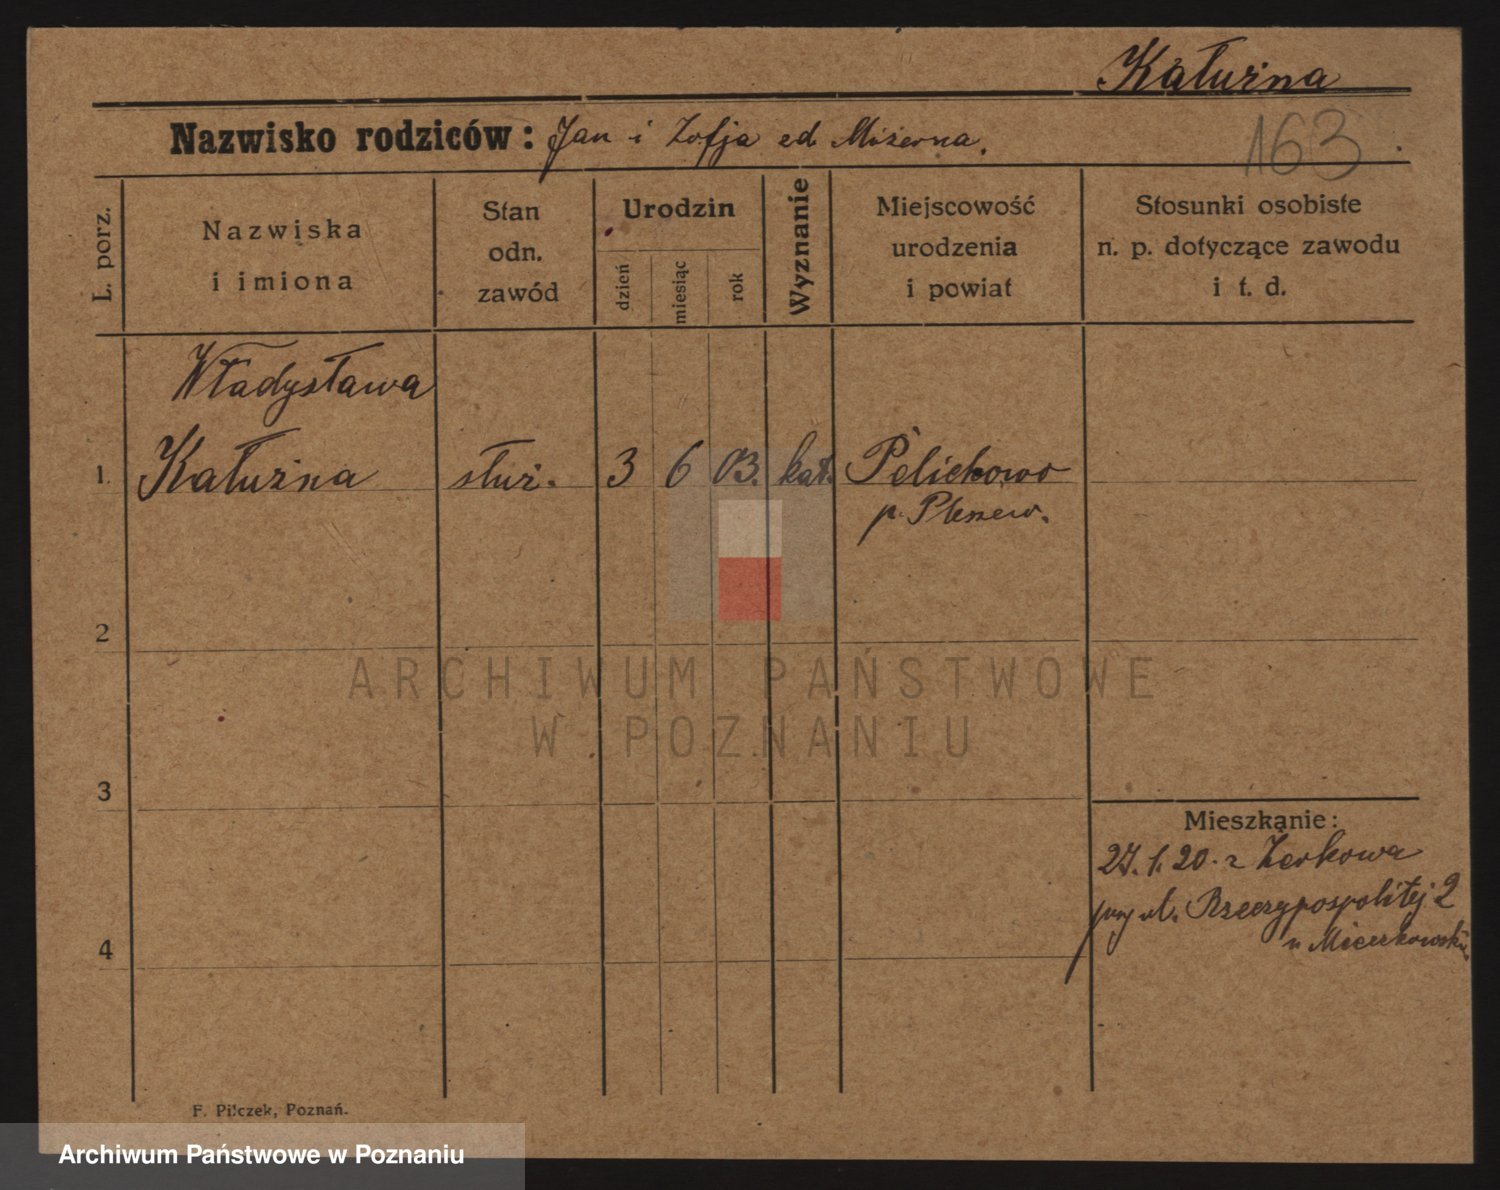 Kałużna
Nazwisko rodziców: Jan i Zofja ed Miżerna.
163
L. porz.
Nazwiska
i imiona
Stan
odn.
zawód
Urodzin
dzień
miesiąc
rok
Wyznanie
Miejscowość
urodzenia
i powiat
Stosunki osobiste
n. p. dotyczące zawodu
i t. d.
Władysława
1. Kałużna służ. 3 6 03. kat. Pelichowo
p. Pleszew.
2
ARCHIWUM PAŃSTWOWE
W POZNANIU
3
Mieszkanie:
27.1.20. z Żerkowa
przy ul. Rzeczypospolitej 2
4
F. Pilczek, Poznań.
Archiwum Państwowe w Poznaniu